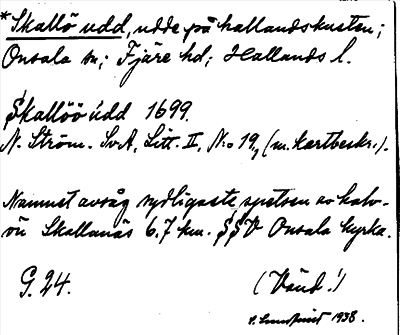 *Skallö udd, udde på hallandskusten;
Onsala sn; Fjäre hd; Hallands l.
Skallöö údd 1699.
N. Ström. SvA, Litt. II, N:o 19, (m. kartbeskr.).
Namnet avsåg sydligaste spetsen av halv-
ön Skallanäs 6.7 km. SSV Onsala kyrka.
G. 24.
(Vänd!)
1938.